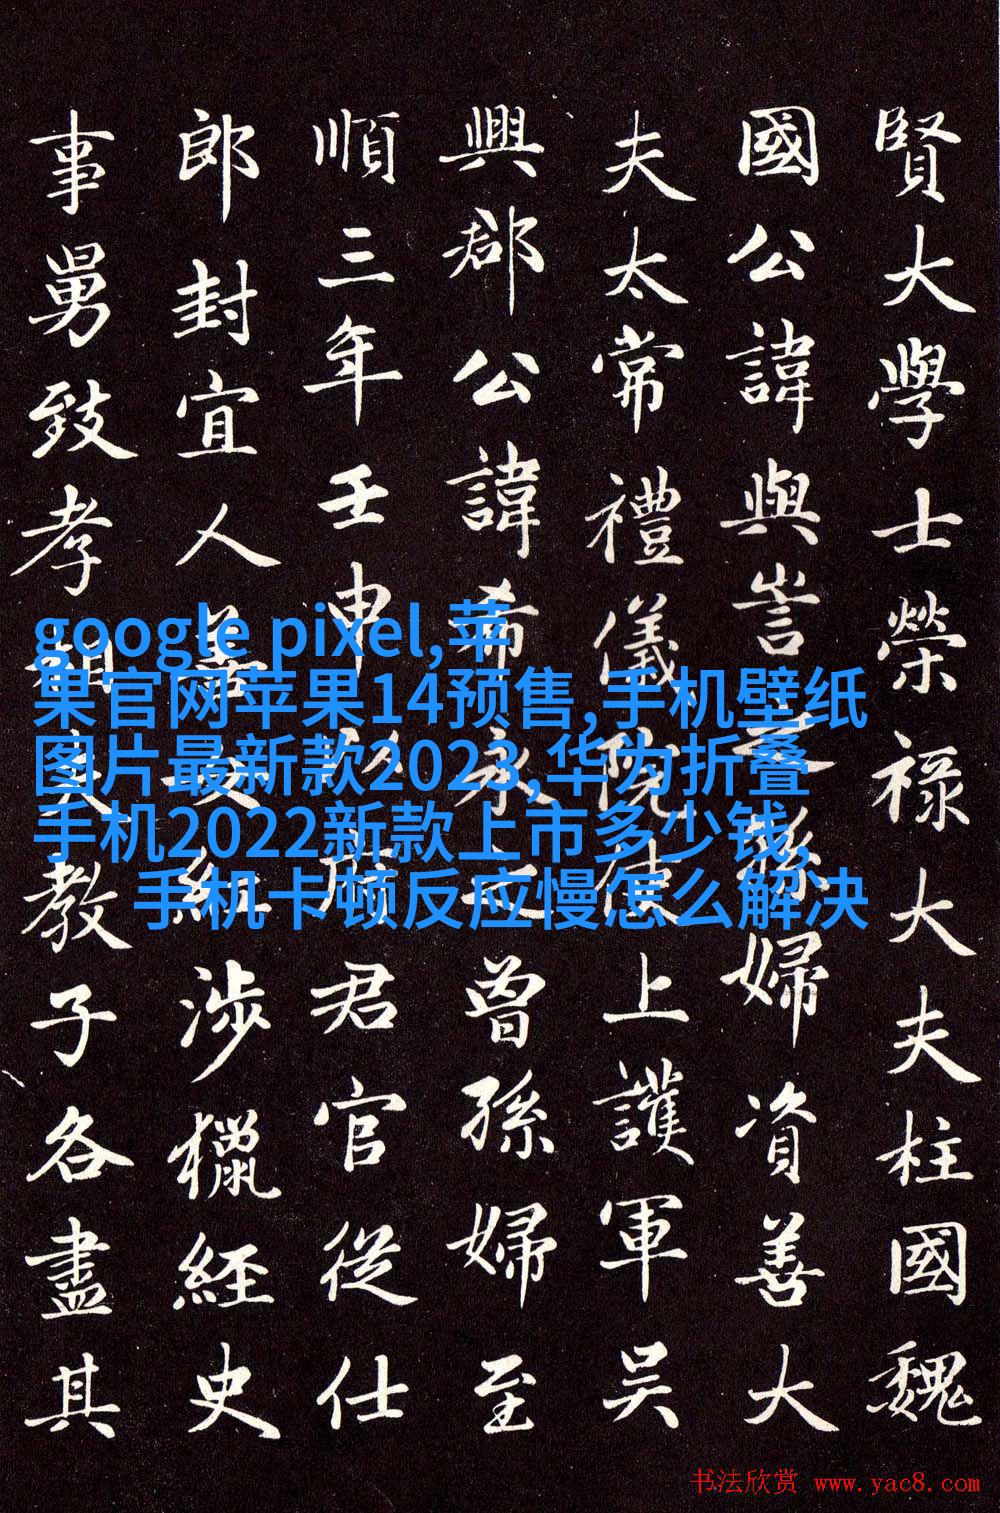 賢大學士榮祿大夫柱國魏
國公諱與訔之孫婦資善大
夫太常禮儀院使上護軍吳
興郡公諱希永之曾孫婦至
順三年壬申以君官從仕
郎封宜人善女紅涉獵經史
事舅致孝相夫教子各盡其
google pixel,苹
果官网苹果14预售,手机壁纸
图片最新款2023,华为折叠
手机2022新款上市多少钱,
手机卡顿反应慢怎么解决
书法欣赏 www.yac8.com